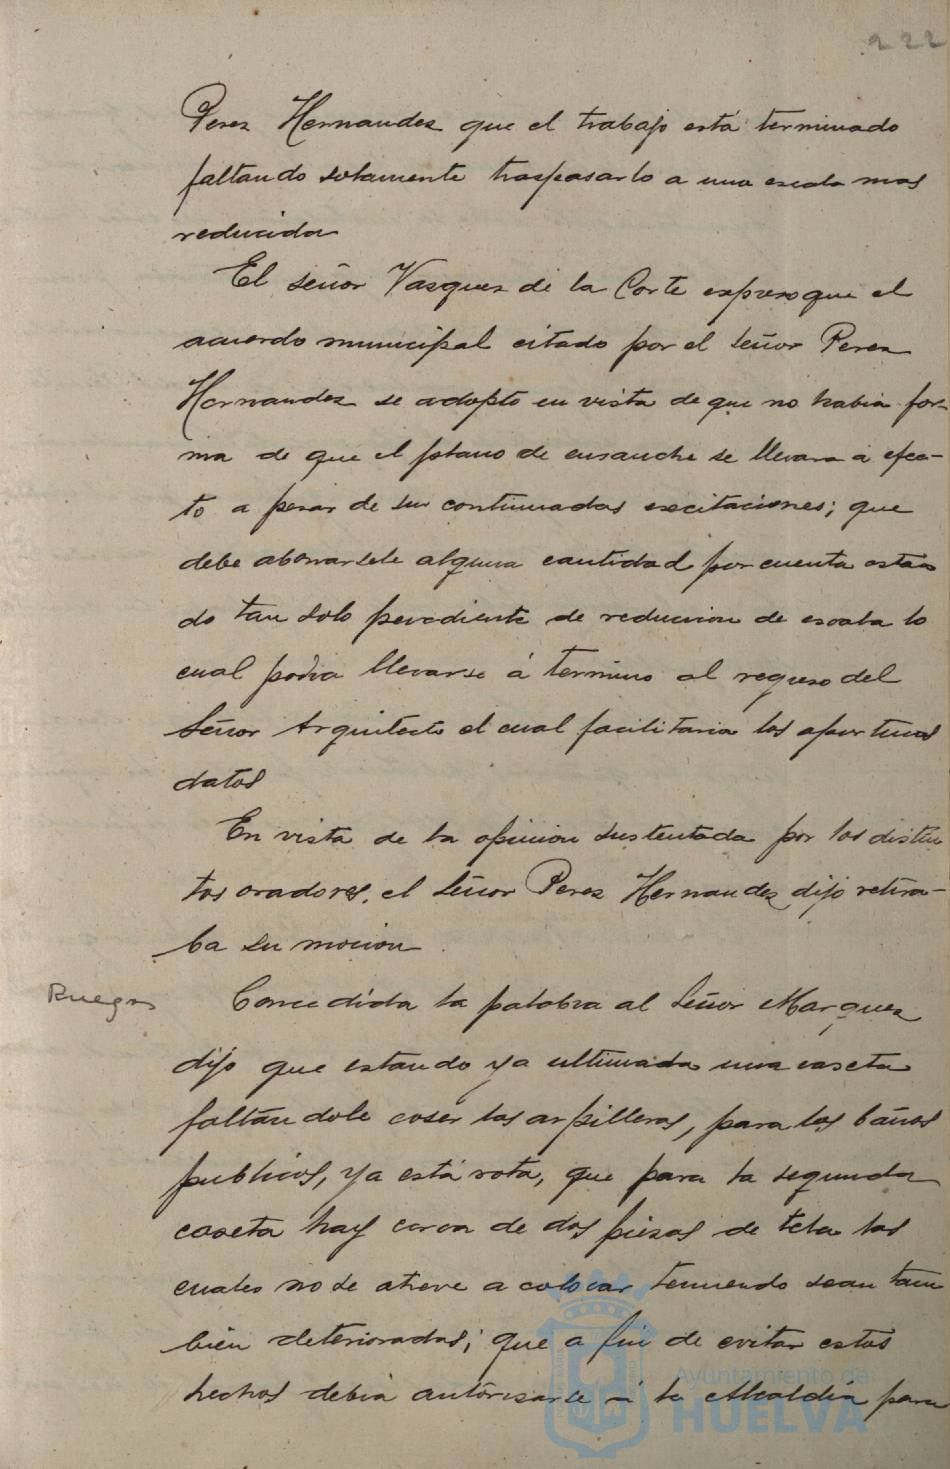 222
Perez Hernandez que el trabajo está terminado
faltando solamente traspasarlo a una escala mas
reducida
El señor Vazquez de la Corte expreso que el
acuerdo municipal citado por el señor Perez
Hernandez se adoptó en vista de que no habia for-
ma de que el plano de ensanche se llevara á efec-
to a pesar de sus continuadas excitaciones; que
debe abonarsele alguna cantidad por cuenta estan
do tan solo pendiente de reduccion de escala lo
cual podia llevarse á termino al regreso del
Señor Arquitecto el cual facilitaria los oportunos
datos
En vista de la opinion sustentada por los distin
tos oradores, el señor Perez Hernandez dijo retira-
ba su mocion
Ruegos
Concedida la palabra al Señor Marquez
dijo que estando ya ultimada una caseta
faltandole coser las arpilleras, para los baños
publicos, ya está rota, que para la segunda
caseta hay cerca de dos piezas de tela las
cuales no se atreve a colocar temiendo sean tam
bien deterioradas; que a fin de evitar estos
hechos debia autorizarse á la Alcaldia para
Ayuntamiento de
HUELVA